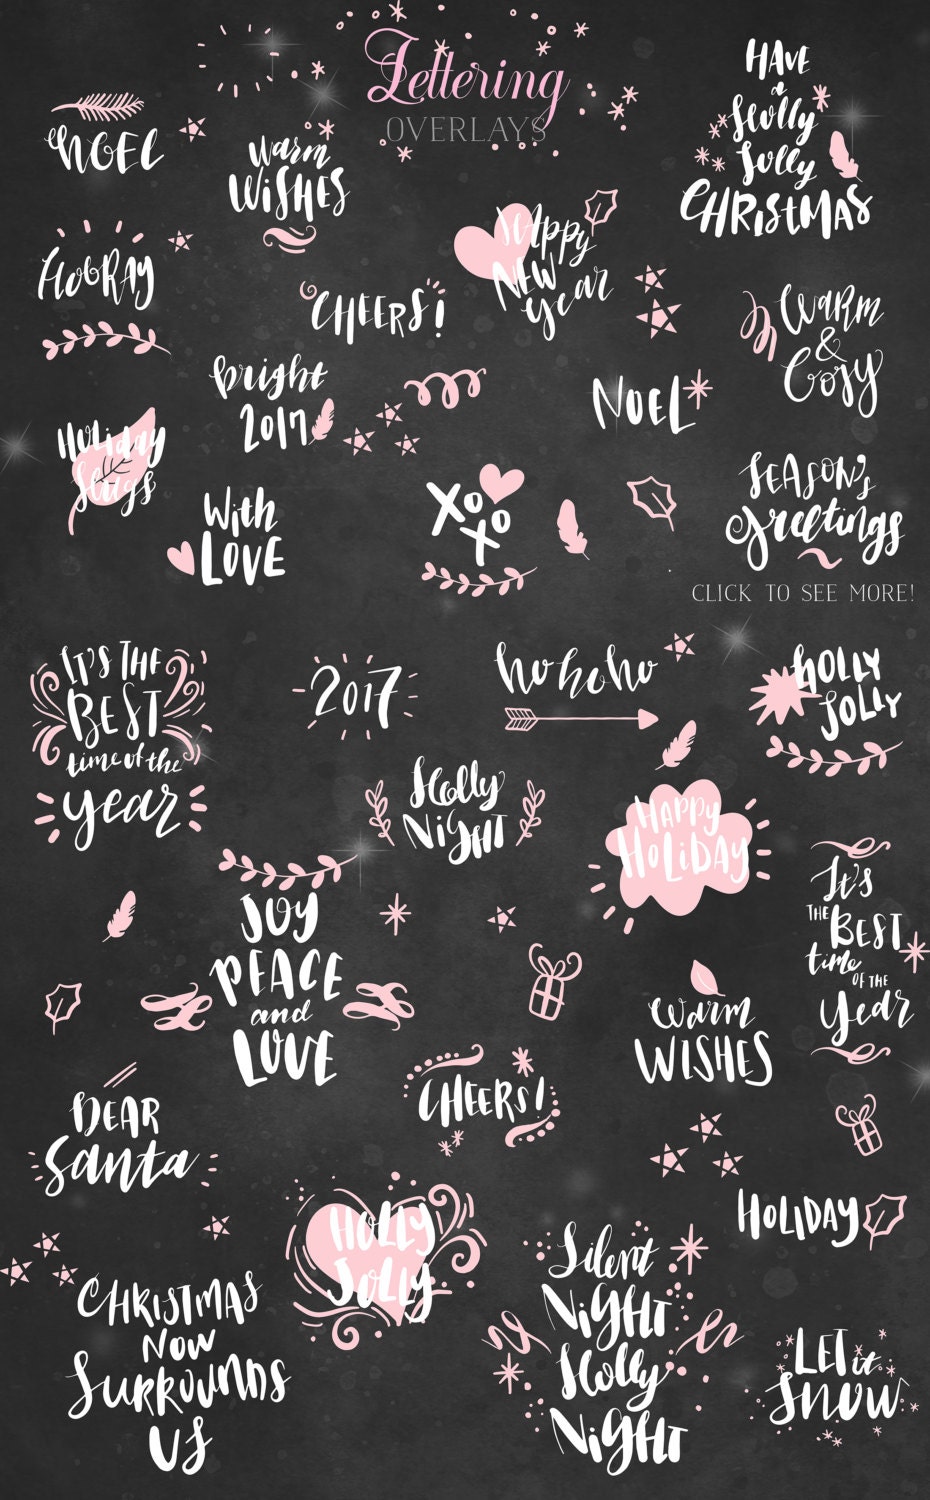 Lettering
OVERLAYS
NOEL
Warm
WISHES
HAVE
a
Holly
Jolly
CHRISTMAS
HOORAY
CHEERS!
Happy
NEW
Year
WARM
&
Cosy
bright
2017
NOEL
HOLIDAY
Hugs
With
LOVE
XO
XO
SEASON'S
Greetings
CLICK TO SEE MORE!
IT'S THE
BEST
time of the
year
2017
ho ho ho
HOLLY
JOLLY
Holly
NIGHT
HAPPY
HOLIDAY
JOY
PEACE
and
LOVE
It's
THE BEST
time
OF THE
Year
Warm
WISHES
DEAR
Santa
CHEERS!
HOLIDAY
HOLLY
JOLLY
CHRISTMAS
NOW
SURROUNDS
US
Silent
NIGHT
Holly
NIGHT
LET it
SNOW